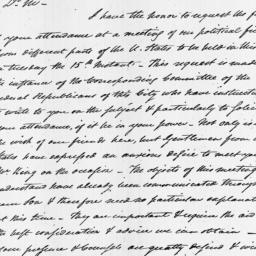 Dr. Sir
I have the honor to request the f
your attendance at a meeting of our political frie
from different parts of the U. States to be held in this
on tuesday the 15th Instant. This request is made
the instance of the Corresponding Committee of the
deral Republicans of this City who have instructed
to write to you on the subject & particularly to solici
your attendance, if it be in your power. Not only is
the wish of our friends here, but Gentlemen from
States have expressed an anxious desire to meet you
Mr. King on the occasion. The objects of this meeting
understand have already been communicated through
& therefore need no particular explanatio
at this time. They are important & require the aid
the best consideration & advice we can obtain
your presence & Counsels are greatly desired &